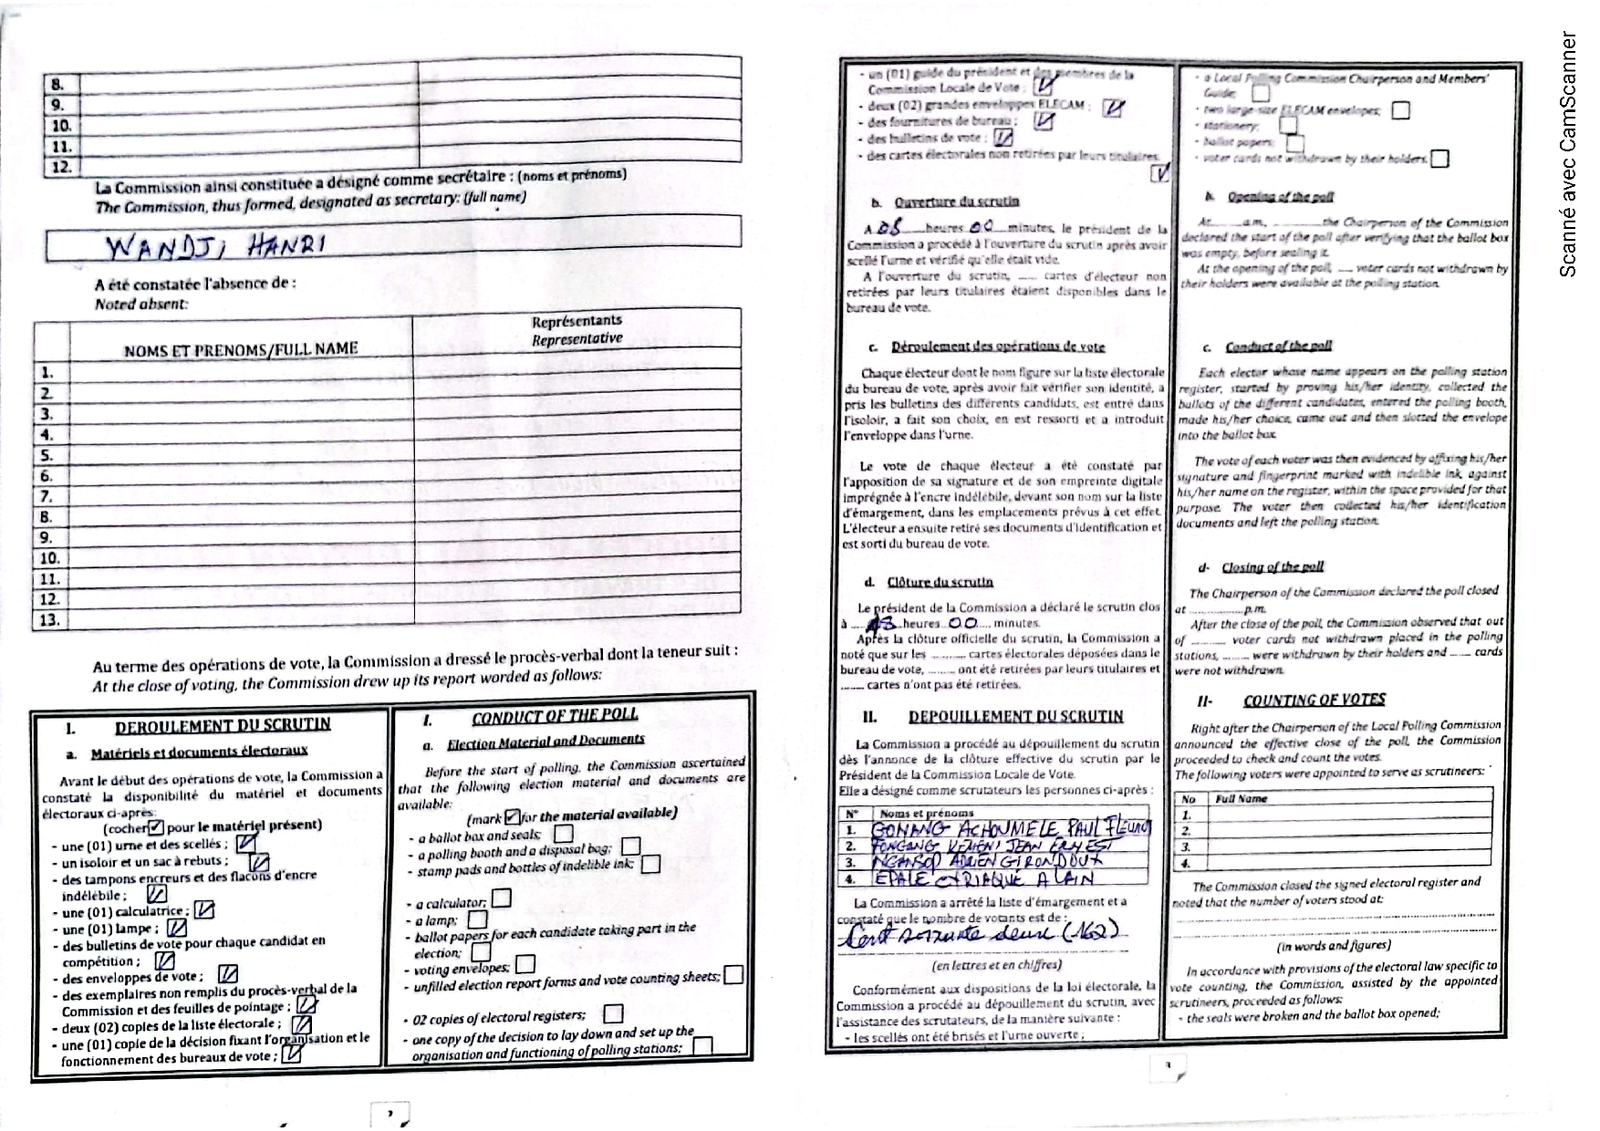 8.
9.
10.
11.
12.
La Commission ainsi constituée a désigné comme secrétaire : (noms et prénoms)
The Commission, thus formed, designated as secretary: (full name)
WANDJI HANRI
A été constatée l'absence de :
Noted absent:
NOMS ET PRENOMS/FULL NAME
Représentants
Representative
1.
2.
3.
4.
5.
6.
7.
8.
9.
10.
11.
12.
13.
Au terme des opérations de vote, la Commission a dressé le procès-verbal dont la teneur suit :
At the close of voting, the Commission drew up its report worded as follows:
I. DEROULEMENT DU SCRUTIN
a. Matériels et documents électoraux
Avant le début des opérations de vote, la Commission a
constaté la disponibilité du matériel et documents
électoraux ci-après:
(cocher pour le matériel présent)
- une (01) urne et des scellés ;
- un isoloir et un sac à rebuts ;
- des tampons encreurs et des flacons d'encre
indélébile ;
- une (01) calculatrice ;
- une (01) lampe ;
- des bulletins de vote pour chaque candidat en
compétition ;
- des enveloppes de vote ;
- des exemplaires non remplis du procès-verbal de la
Commission et des feuilles de pointage ;
- deux (02) copies de la liste électorale ;
- une (01) copie de la décision fixant l'organisation et le
fonctionnement des bureaux de vote ;
I. CONDUCT OF THE POLL
a. Election Material and Documents
Before the start of polling, the Commission ascertained
that the following election material and documents are
available:
(mark for the material available)
- a ballot box and seals;
- a polling booth and a disposal bag;
- stamp pads and bottles of indelible ink;
- a calculator;
- a lamp;
- ballot papers for each candidate taking part in the
election;
- voting envelopes;
- unfilled election report forms and vote counting sheets;
- 02 copies of electoral registers;
- one copy of the decision to lay down and set up the
organisation and functioning of polling stations;
2
- un (01) guide du président et des membres de la
Commission Locale de Vote ;
- deux (02) grandes enveloppes ELECAM ;
- des fournitures de bureau ;
- des bulletins de vote ;
- des cartes électorales non retirées par leurs titulaires.
b. Ouverture du scrutin
A 08 heures 00 minutes, le président de la
Commission a procédé à l'ouverture du scrutin après avoir
scellé l'urne et vérifié qu'elle était vide.
A l'ouverture du scrutin, ...... cartes d'électeur non
retirées par leurs titulaires étaient disponibles dans le
bureau de vote.
c. Déroulement des opérations de vote
Chaque électeur dont le nom figure sur la liste électorale
du bureau de vote, après avoir fait vérifier son identité, a
pris les bulletins des différents candidats, est entré dans
l'isoloir, a fait son choix, en est ressorti et a introduit
l'enveloppe dans l'urne.
Le vote de chaque électeur a été constaté par
l'apposition de sa signature et de son empreinte digitale
imprégnée à l'encre indélébile, devant son nom sur la liste
d'émargement, dans les emplacements prévus à cet effet.
L'électeur a ensuite retiré ses documents d'identification et
est sorti du bureau de vote.
d. Clôture du scrutin
Le président de la Commission a déclaré le scrutin clos
à 18 heures 00 minutes.
Après la clôture officielle du scrutin, la Commission a
noté que sur les ......... cartes électorales déposées dans le
bureau de vote, ......... ont été retirées par leurs titulaires et
....... cartes n'ont pas été retirées.
II. DEPOUILLEMENT DU SCRUTIN
La Commission a procédé au dépouillement du scrutin
dès l'annonce de la clôture effective du scrutin par le
Président de la Commission Locale de Vote.
Elle a désigné comme scrutateurs les personnes ci-après :
N° Noms et prénoms
1. GONANG ACHOUMELE PAUL
2. FONGANG JEAN ERNEST
3. NGANSOP ADRIEN GIRONDOUX
4. EPALE ALAIN
La Commission a arrêté la liste d'émargement et a
constaté que le nombre de votants est de :
Cent soixante deux (162)
(en lettres et en chiffres)
Conformément aux dispositions de la loi électorale, la
Commission a procédé au dépouillement du scrutin, avec
l'assistance des scrutateurs, de la manière suivante :
- les scellés ont été brisés et l'urne ouverte ;
- a Local Polling Commission Chairperson and Members'
Guide;
- two large-size ELECAM envelopes;
- stationery;
- ballot papers;
- voter cards not withdrawn by their holders.
b. Opening of the poll
At........a.m, ..............the Chairperson of the Commission
declared the start of the poll after verifying that the ballot box
was empty, before sealing it.
At the opening of the poll, ..... voter cards not withdrawn by
their holders were available at the polling station.
c. Conduct of the poll
Each elector whose name appears on the polling station
register, started by proving his/her identity, collected the
ballots of the different candidates, entered the polling booth,
made his/her choice, came out and then slotted the envelope
into the ballot box.
The vote of each voter was then evidenced by affixing his/her
signature and fingerprint marked with indelible ink, against
his/her name on the register, within the space provided for that
purpose. The voter then collected his/her identification
documents and left the polling station.
d- Closing of the poll
The Chairperson of the Commission declared the poll closed
at ..............p.m.
After the close of the poll, the Commission observed that out
of ......... voter cards not withdrawn placed in the polling
stations, ........ were withdrawn by their holders and ...... cards
were not withdrawn.
II- COUNTING OF VOTES
Right after the Chairperson of the Local Polling Commission
announced the effective close of the poll, the Commission
proceeded to check and count the votes.
The following voters were appointed to serve as scrutineers:
No Full Name
1.
2.
3.
4.
The Commission closed the signed electoral register and
noted that the number of voters stood at:
(in words and figures)
In accordance with provisions of the electoral law specific to
vote counting, the Commission, assisted by the appointed
scrutineers, proceeded as follows:
- the seals were broken and the ballot box opened;
3
Scanné avec CamScanner